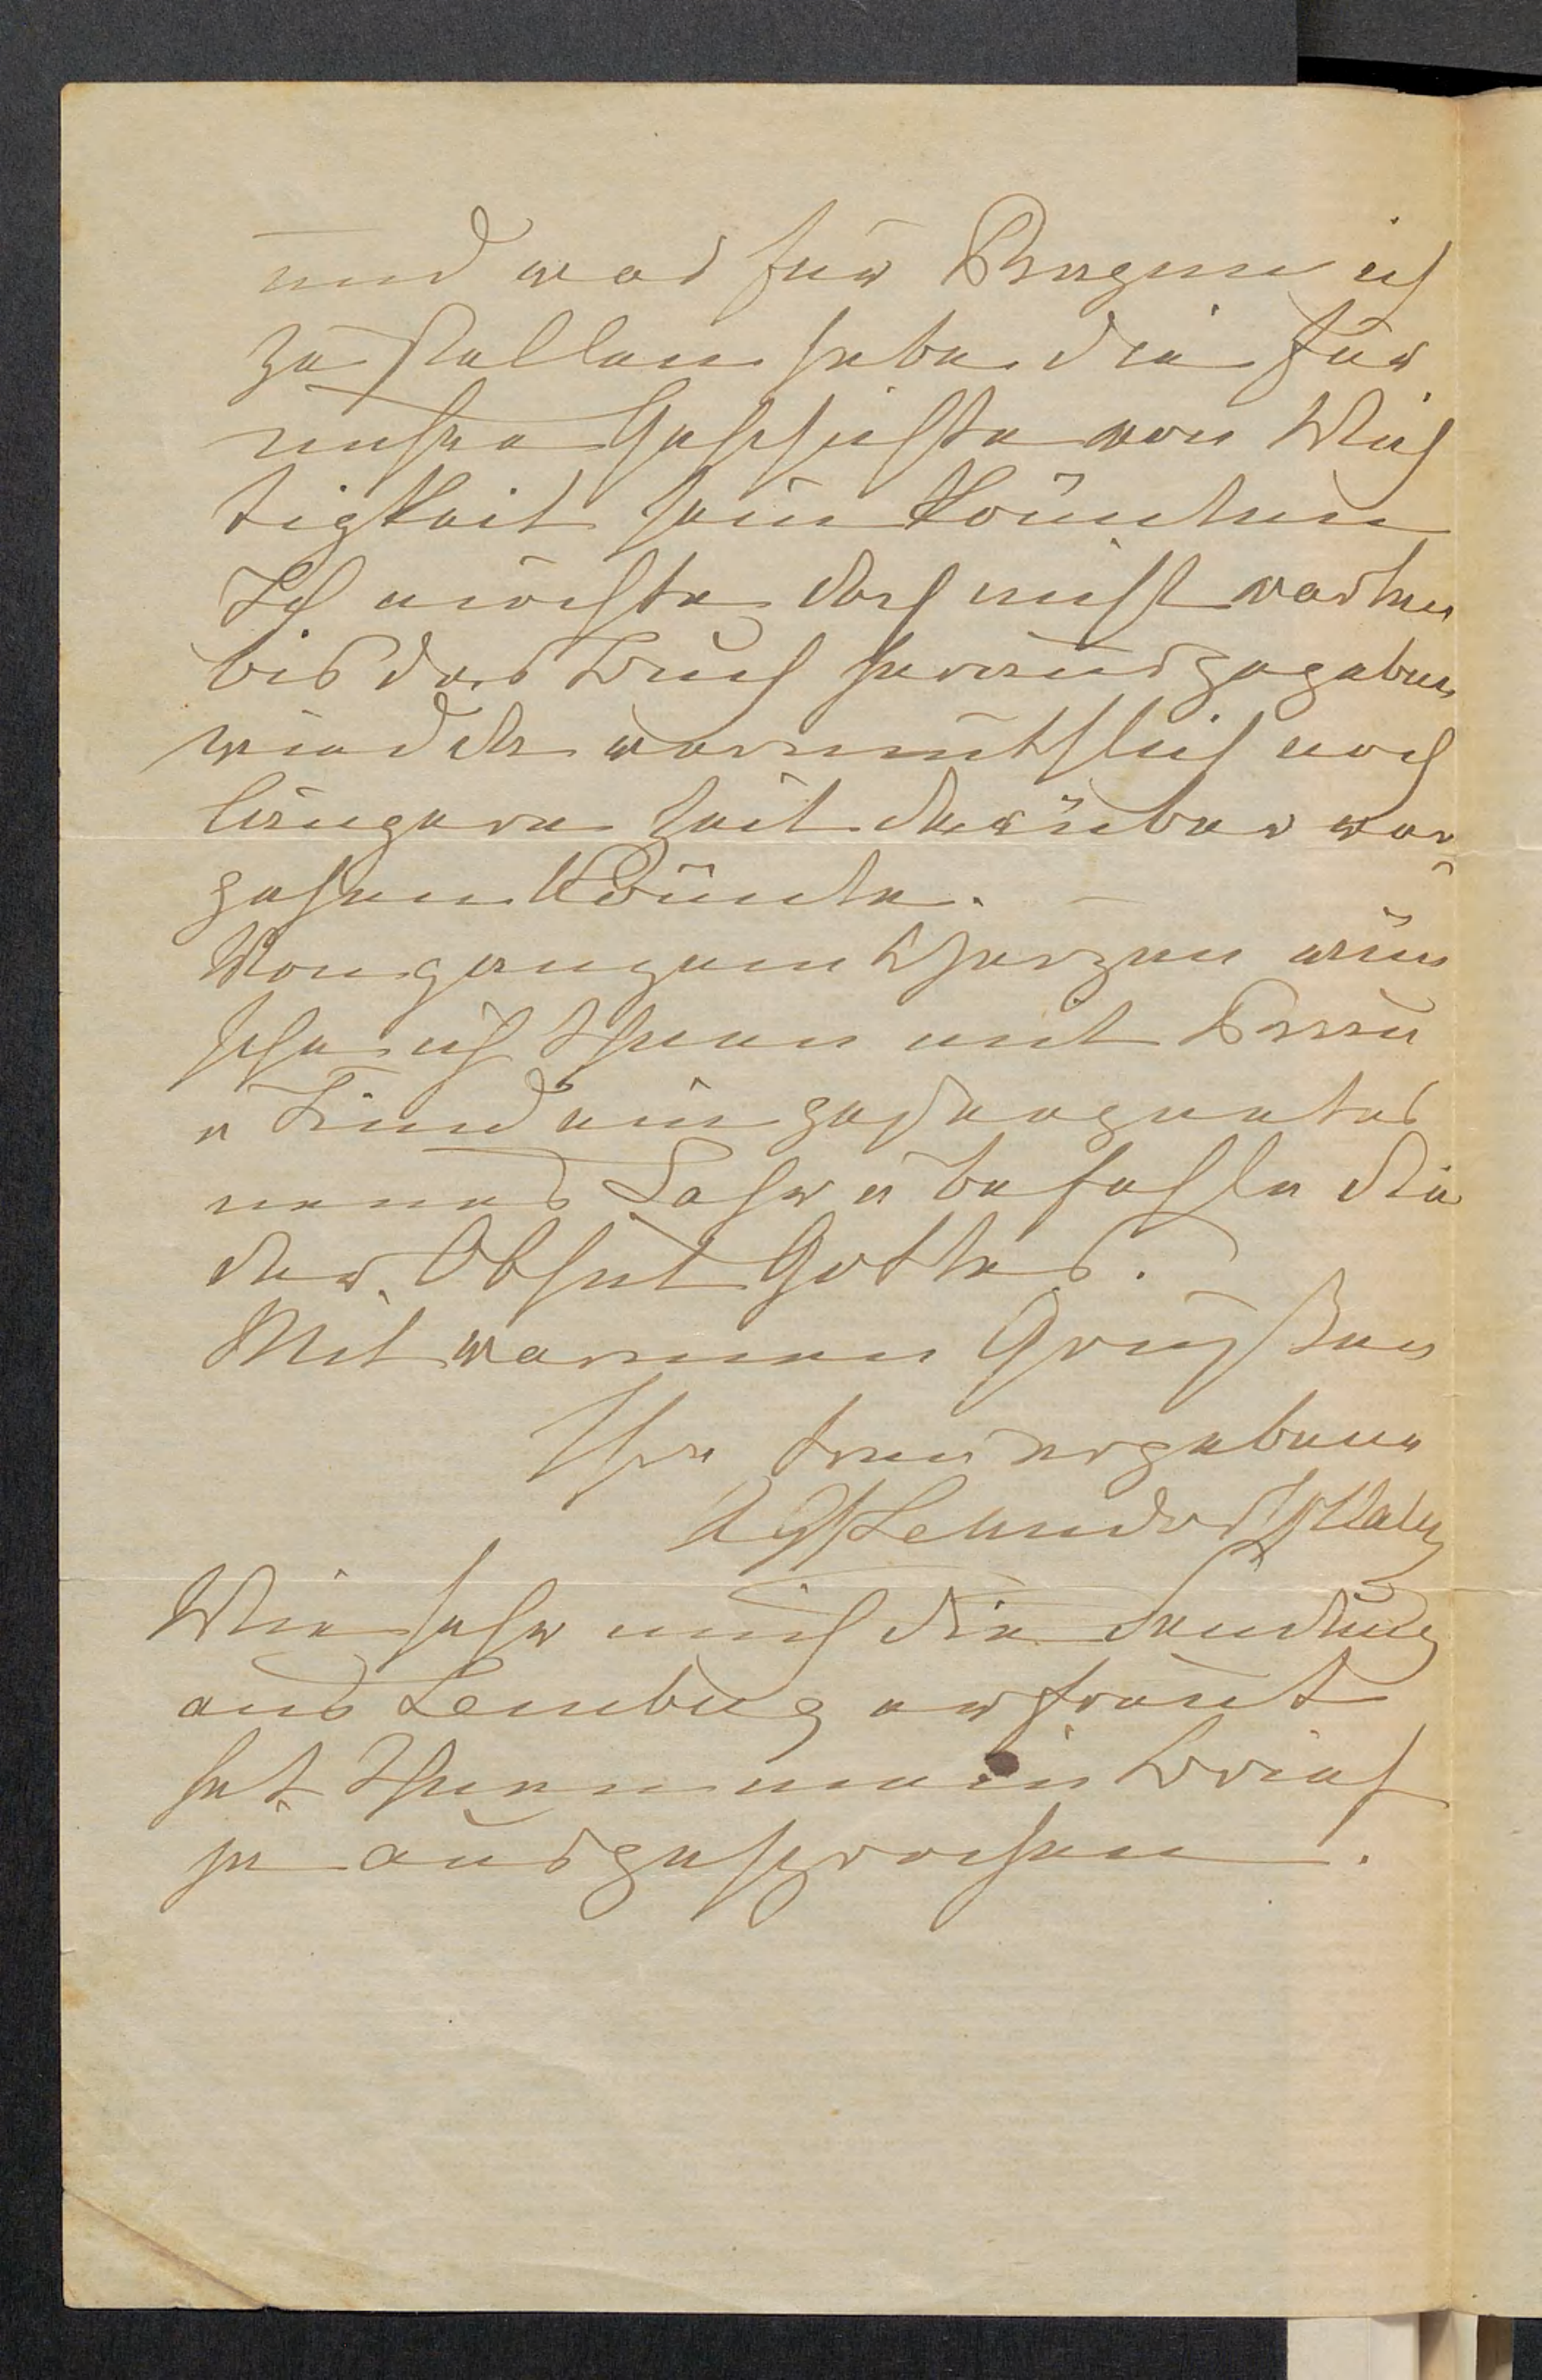 und was für Fragen ich
zu stellen habe die für
unsre Geschichte von Wich
tigkeit sein könnten
Ich möchte doch nicht warten
bis das Buch herausgegeben
wird da vermuthlich noch
längere Zeit darüber ver-
gehen könnte. –
Von ganzem Herzen wün
sche ich Ihnen mit Frau
u Kind ein gesegnetes
neues Jahr u befehle Sie
der Obhut Gottes.
Mit warmen Grüßen
Ihre treu ergebene
Lehndorff
Wie sehr mich die Sendung
aus Lemburg erfreut
hat Ihnen mein Brief
ja ausgesprochen.